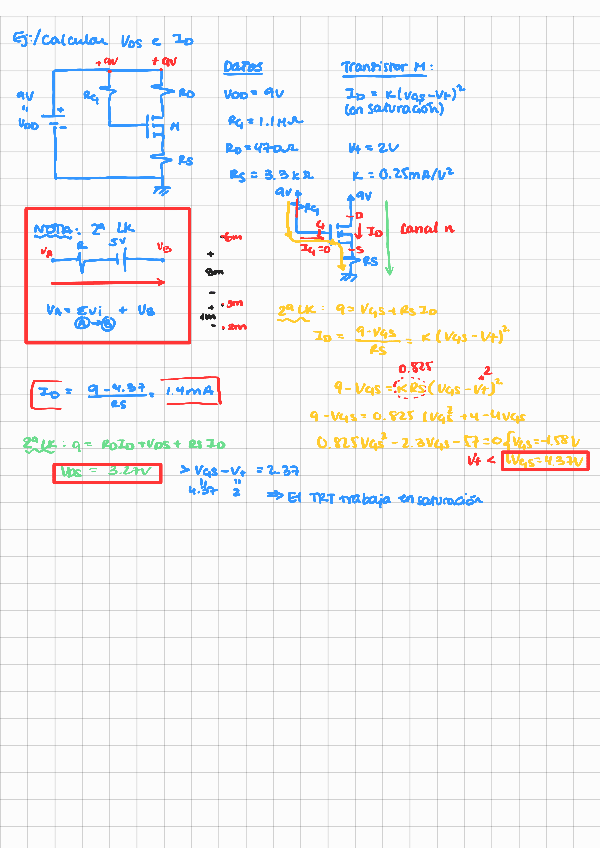 Ej:/Calcular VDS e ID
+9V +9V
9V
"
VDD
+
-
RG RD
M
RS
Datos
VDD = 9V
RG = 1.1MΩ
RD = 470Ω
RS = 3.3kΩ
Transistor M:
ID = K(VGS-Vt)²
(en saturación)
Vt = 2V
K = 0.25mA/V²
9V 9V
RG
G D
IG=0 ID
S
RS
canal n
NOTA: 2ª LK
VA R 5V VB
VA = ΣVi + VB
A→B
+
8m
-
+
1m
-
2ª LK: 9 = VGS + RS ID
ID = 9-VGS / RS = K(VGS-Vt)²
0.825 2
9-VGS = K RS (VGS-Vt)²
9-VGS = 0.825 (VGS² + 4 - 4VGS
0.825VGS² - 2.3VGS - 5.7 = 0 VGS=-1.58V
Vt < VGS=4.37V
ID = 9-4.37 / RS = 1.4mA
2ª LK: 9 = RD ID + VDS + RS ID
VDS = 3.27V > VGS-Vt = 2.37
" "
4.37 2
⇒ El TRT trabaja en saturación